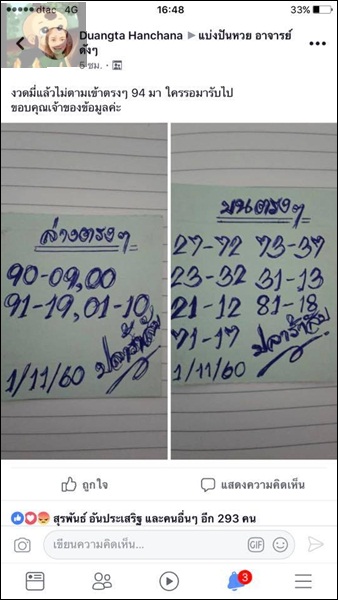 dtac 4G 16:48 33%
Duangta Hanchana ▶ แบ่งปันหวย อาจารย์
ดังๆ
5 ชม.
งวดมี่แล้วไม่ตามเข้าตรงๆ 94 มา ใครรอมารับไป
ขอบคุณเจ้าของข้อมูลค่ะ
ล่างตรงๆ
90-09,00
91-19,01-10
1/11/60
บนตรงๆ
27-72 73-37
23-32 31-13
21-12 81-18
71-17
1/11/60
ถูกใจ แสดงความคิดเห็น
สุรพันธ์ อันประเสริฐ และคนอื่นๆ อีก 293 คน
เขียนความคิดเห็น... GIF
3